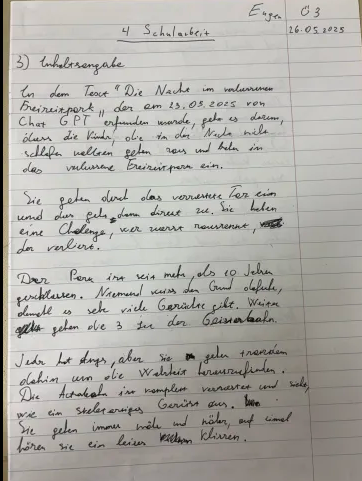 Eugen Ü 3
4 Schularbeit 26.05.2025
3) Inhaltsangabe
In dem Text "Die Nacht im verlorenen
Freizeitpark", der am 23.05.2025 von
Chat GPT erfunden wurde, geht es darum,
dass die Kinder, die in der Nacht nicht
schlafen wollen gehen raus und in
das verlassene Freizeitpark ein.
Sie gehen durch das verrostete Tor ein
und das geht dann direkt zu. Sie haben
eine Chalenge, wer zuerst rausrennt,
der verliert.
Der Park ist seit mehr, als 10 Jahren
geschlossen. Niemand weiss den Grund dafür,
es sehr viele Gerüchte gibt. Weiter
gehen die 3 zu der Geisterbahn.
Jeder hat Angs, aber sie gehen trozdem
dahin um die Wahrheit herauszufinden.
Die ist komplett verrostet und sieht,
wie ein skeletartiges Gerüst aus.
Sie gehen immer näher und näher, auf einmal
hören sie ein leises klirren.